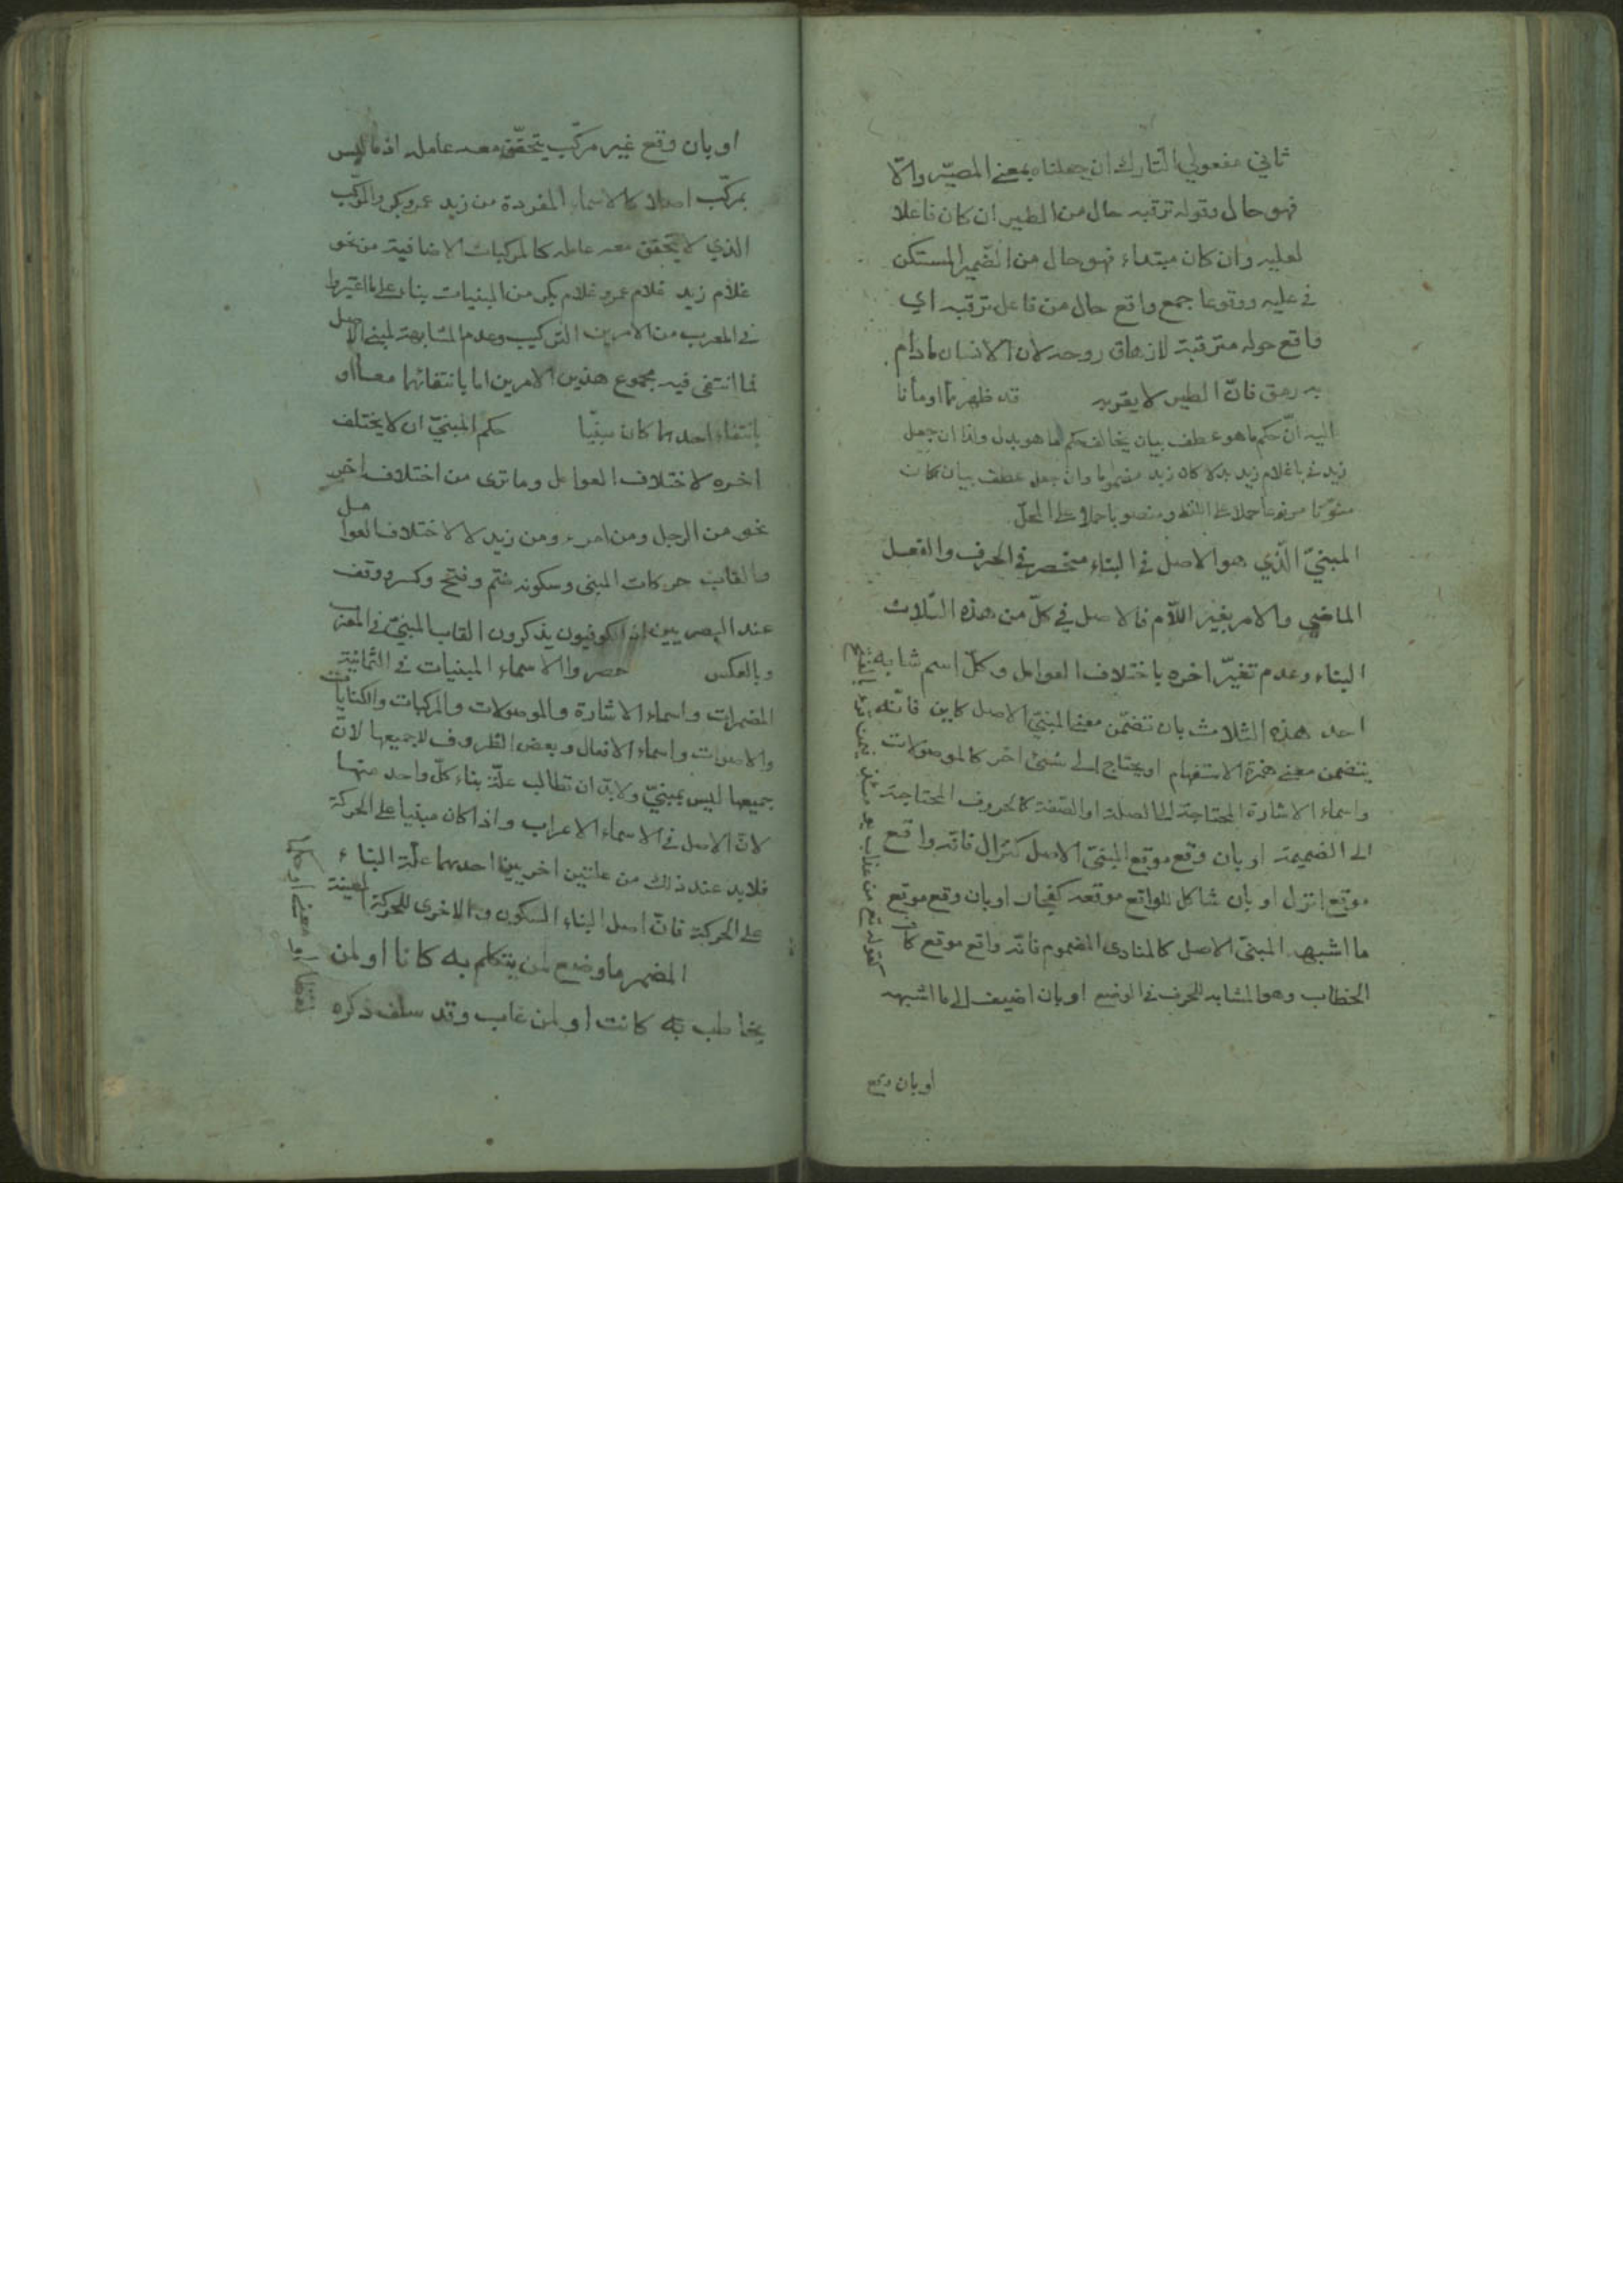 ثاني مفعولي التارك ان جعلناه بمعنى المصيّر والّا
فهو حال وقوله ترقبه حال من الطير ان كان فاعلا
لعليه وان كان مبتداء فهو حال من الضمير المستكن
في عليه ووقوعا جمع واقع حال من فاعل ترقبه اي
واقع حوله مترقبة لازهاق روحه لان الانسان مادام
به رمق فانّ الطير لا يقربه قد ظهر مما اومأنا
اليه انّ حكم ما هو عطف بيان يخالف حكم ما هو بدل واذا ان جعل
زيد في يا غلام زيد بدلا كان زيد مضموما وان جعل عطف بيان كان
منوّنا مرفوعا حملا على اللفظ ومنصوبا حملا على المحلّ
المبنيّ الّذي هو الاصل في البناء منحصر في الحرف والفعل
الماضي والامر بغير اللّام فالاصل في كلّ من هذه الثلاث
البناء وعدم تغيّر اخره باختلاف العوامل وكلّ اسم شابه
احد هذه الثلاث بان تضمّن معنى المبنيّ الاصل كاين فانّه
يتضمن معنى همزة الاستفهام او يحتاج الى شئ اخر كالموصولات
واسماء الاشارة المحتاجة الى الصلة او الصّفة كالحروف المحتاجة
الى الضميمة او بان وقع موقع المبنيّ الاصل كنزال فانّه واقع
موقع انزل او بان شاكل للواقع موقعه كفجار او بان وقع موقع
ما اشبه المبنيّ الاصل كالمنادى المضموم فانّه واقع موقع كاف
الخطاب وهو المشابه للحرف في الوضع او بان اضيف الى ما اشبهه
كقوله تع من عذاب يومئذ
او بان وقع
او بان وقع غير مركّب يتحقّق معه عامله اذ ما ليس
بمركّب اصلا كالاسماء المفردة من زيد عمرو بكر والمركّب
الذي لا يتحقق معه عامله كالمركبات الاضافية من نحو
غلام زيد غلام عمرو غلام بكر من المبنيات بناء على ما اعتبروا
في المعرب من الامرين التركيب وعدم المشابهة لمبني الاصل
فما انتفى فيه مجموع هذين الامرين اما بانتفائهما معا او
بانتفاء احدهما كان مبنيّا حكم المبنيّ ان لا يختلف
اخره لاختلاف العوامل وما ترى من اختلاف اخر
نحو من الرجل ومن امرء ومن زيد لا لاختلاف العوامل
والقاب حركات المبني وسكونه ضم وفتح وكسر ووقف
عند البصريين اذ الكوفيون يذكرون القاب المبنيّ في المعرب
وبالعكس حصروا الاسماء المبنيات في الثمانية
المضمرات واسماء الاشارة والموصولات والمركبات والكنايات
والاصوات واسماء الافعال وبعض الظروف لا جميعها لانّ
جميعها ليس بمبنيّ ولا بدّ ان تطالب علّة بناء كلّ واحد منها
لانّ الاصل في الاسماء الاعراب واذا كان مبنيا على الحركة
فلابد عند ذلك من علتين اخريين احدهما علّة البناء
على الحركة فانّ اصل البناء السكون والاخرى للحركة المعينة
المضمر ما وضع لمن يتكلم به كانا او لمن
يخاطب به كانت او لمن غاب وقد سلف ذكره
لفظا او معنى او حكما